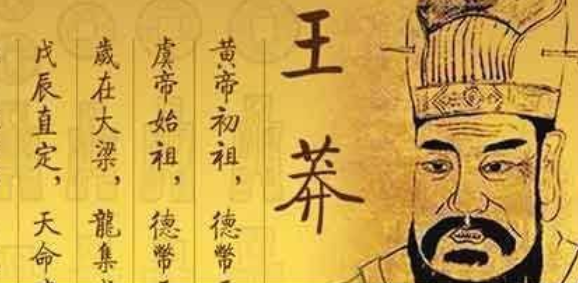 王莽
黄帝初祖，德幣
虞帝始祖，德幣
歲在大梁，龍集
戊辰直定，天命